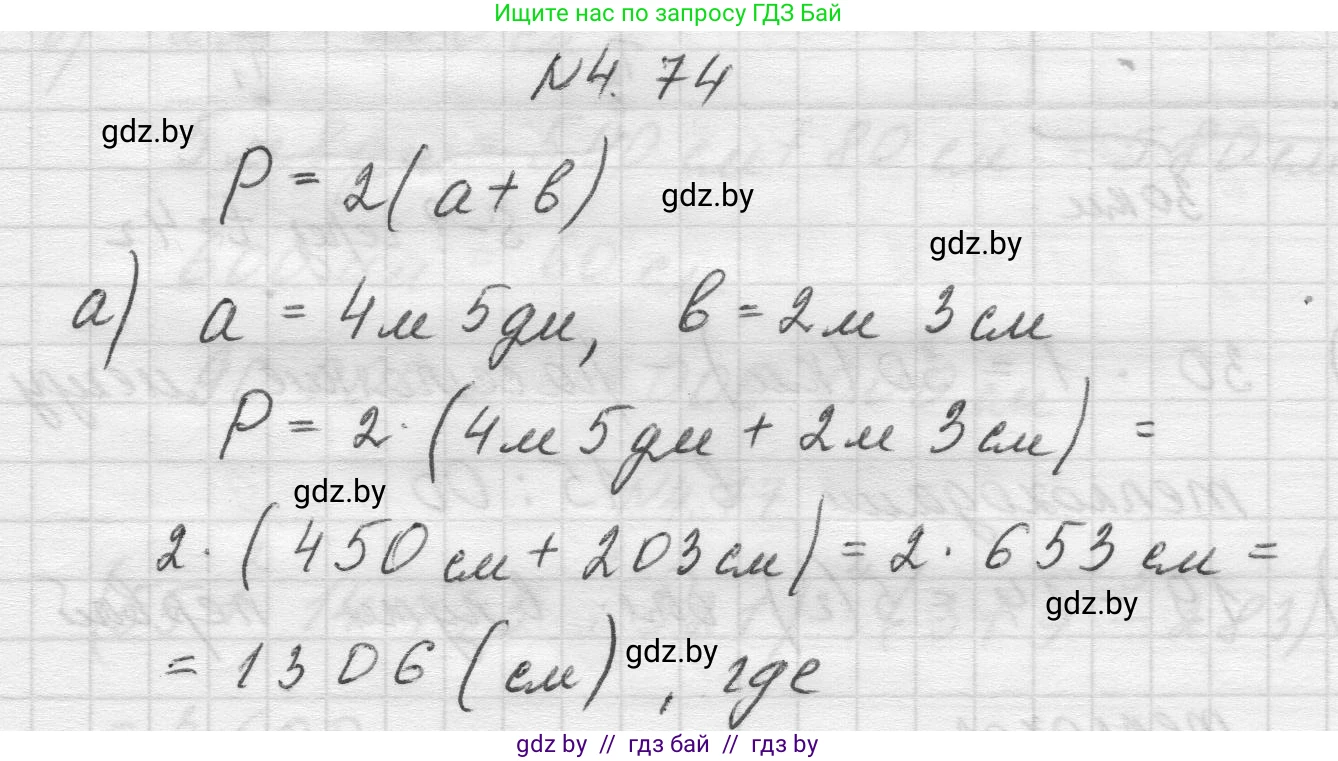 Ищите нас по запросу ГДЗ Бай
N4.74
gdz.by
P = 2(a+в)
gdz.by
gdz.by
а) a = 4м 5дм, в = 2м 3см
P = 2·(4м 5дм + 2м 3см) =
gdz.by
2·(450см + 203см) = 2·653см =
gdz.by
= 1306 (см), где
gdz.by
gdz by // гдз бай // гдз by